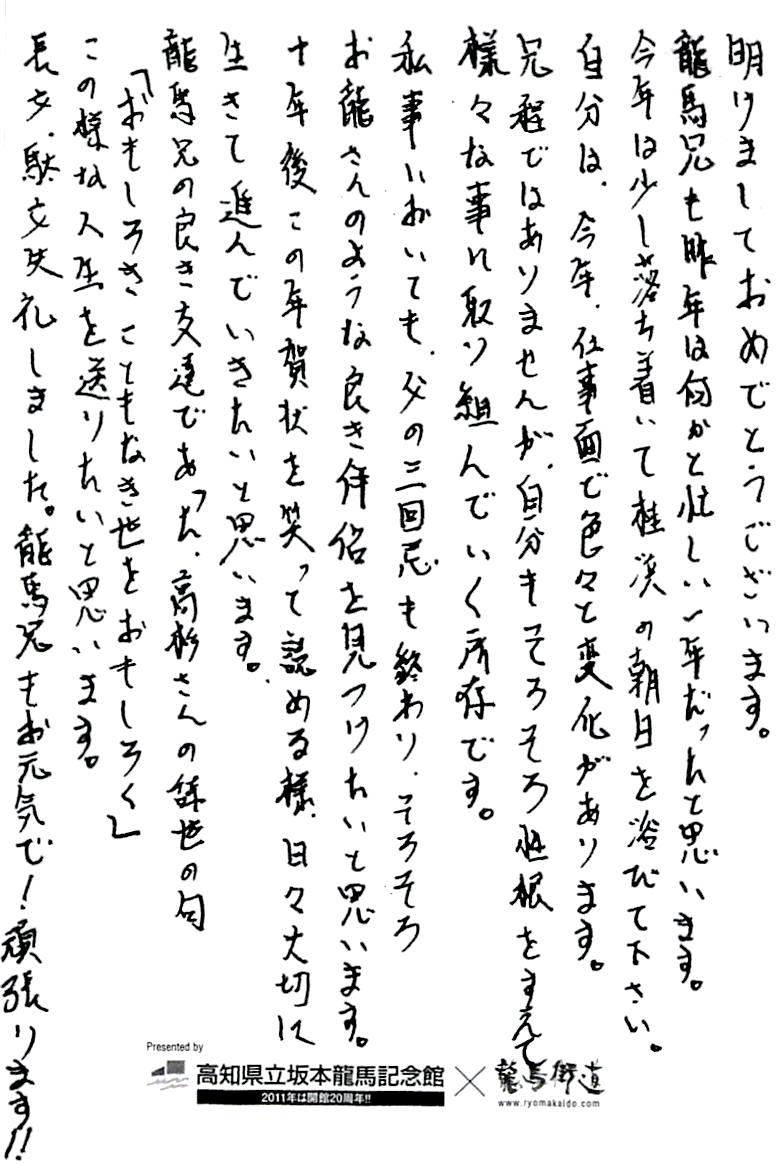 明けましておめでとうございます。
龍馬兄も昨年は何かと忙しい一年だったと思います。
今年は少し落ち着いて桂浜の朝日を浴びて下さい。
自分は、今年、仕事面で色々と変化があります。
兄程ではありませんが、自分もそろそろ性根をすえて
様々な事に取り組んでいく所存です。
私事においても、父の三回忌も終わり、そろそろ
お龍さんのような良き伴侶を見つけたいと思います。
十年後この年賀状を笑って読める様、日々大切に
生きて進んでいきたいと思います。
龍馬兄の良き友達であった、高杉さんの辞世の句
「おもしろきこともなき世をおもしろく」
この様な人生を送りたいと思います。
長文・駄文失礼しました。龍馬兄もお元気で！頑張ります!!
Presented by
高知県立坂本龍馬記念館 × 龍馬街道
2011年は開館20周年!!
www.ryomakaido.com